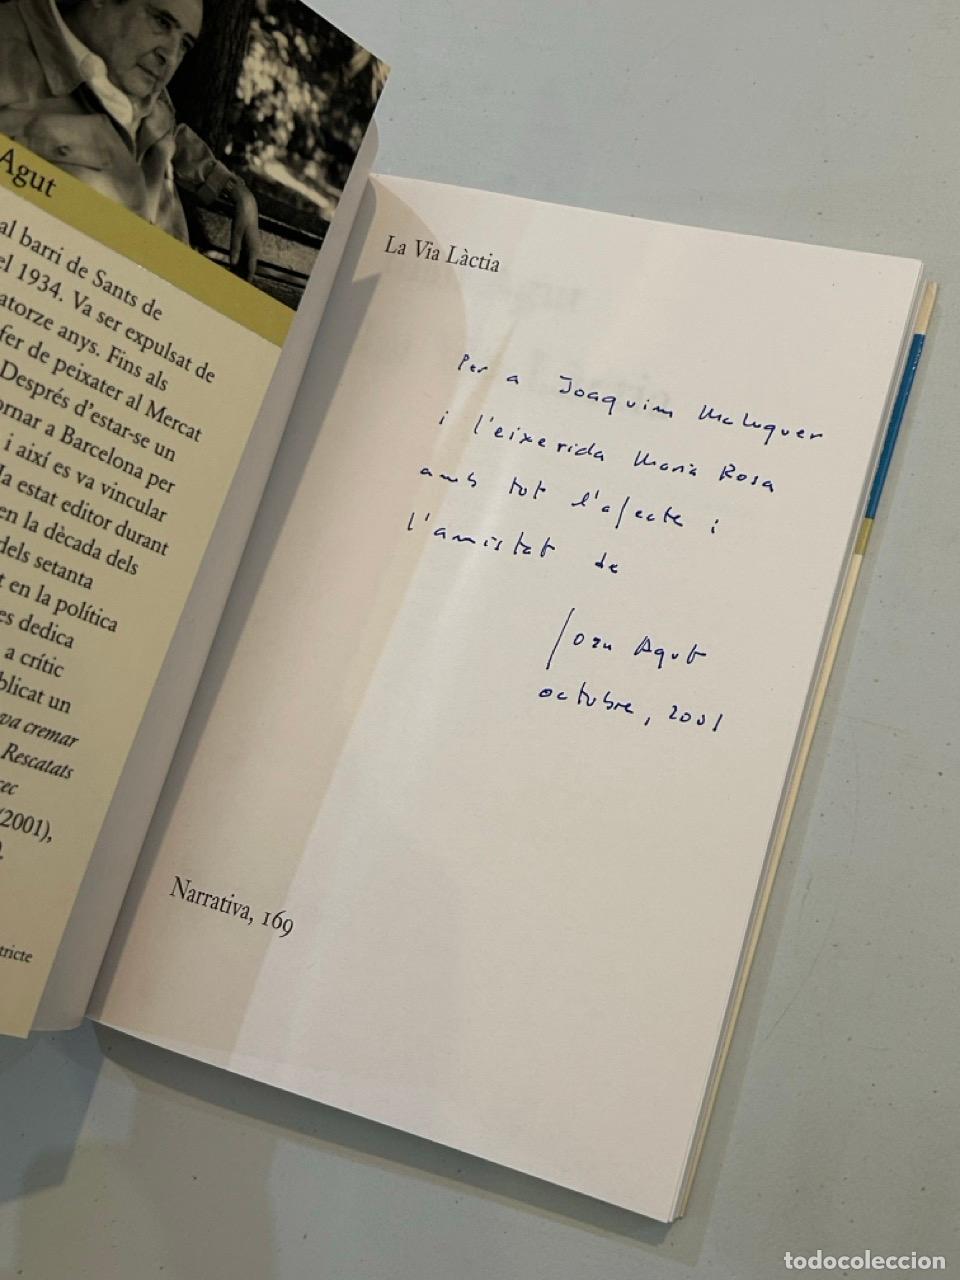 Agut
al barri de Sants de
el 1934. Va ser expulsat de
atorze anys. Fins als
fer de peixater al Mercat
Després d'estar-se un
ornar a Barcelona per
i així es va vincular
Ha estat editor durant
en la dècada dels
dels setanta
t en la política
es dedica
a crític
blicat un
va cremar
Rescatats
rec
(2001),
tricte
La Via Làctia
Per a Joaquim Maluquer
i l'eixerida Maria Rosa
amb tot l'afecte i
l'amistat de
Joan Agut
octubre, 2001
Narrativa, 169
todocoleccion